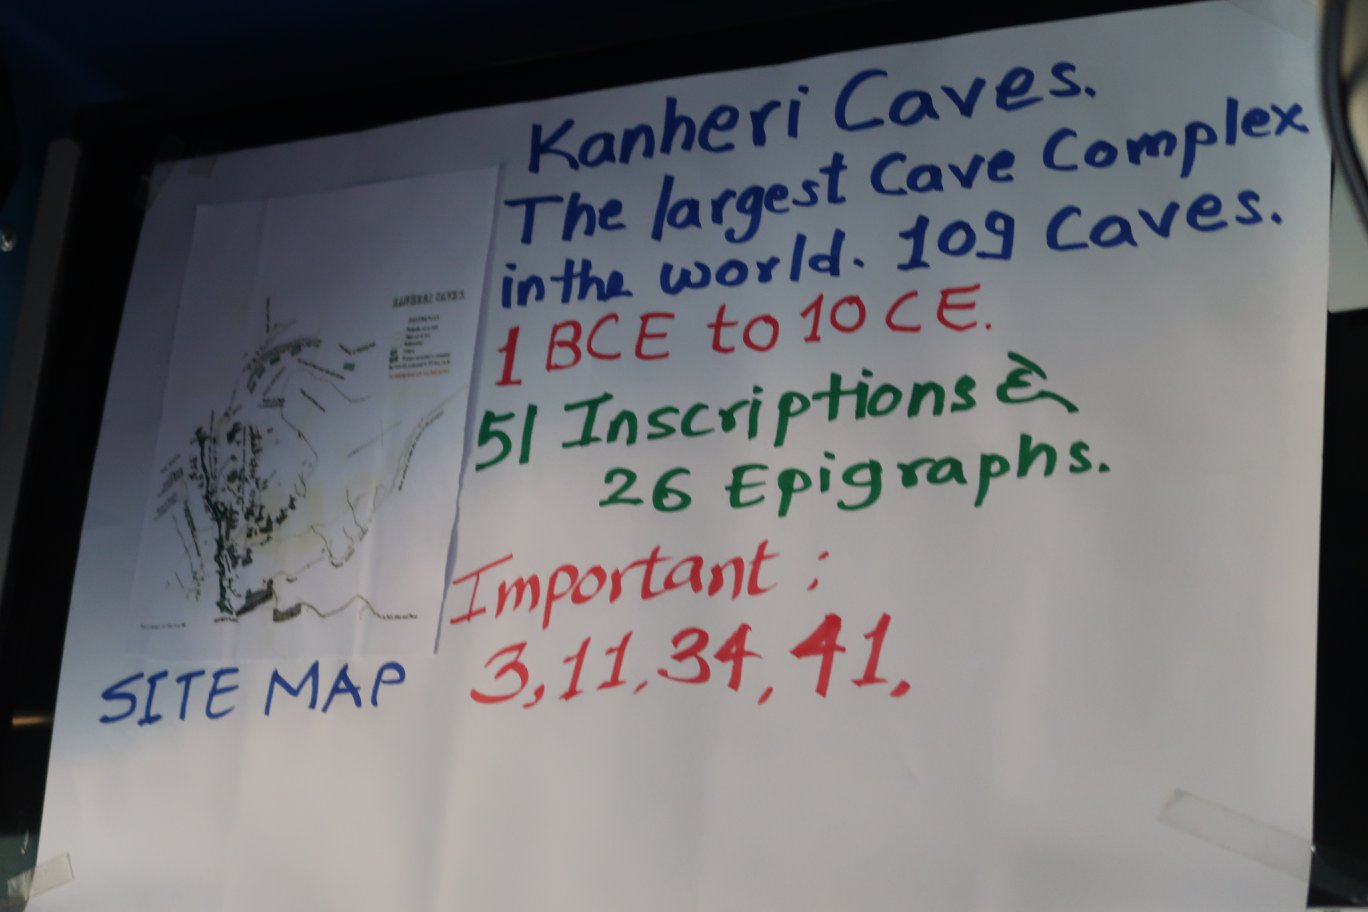 Kanheri Caves.
The largest Cave Complex
in the world. 109 Caves.
1 BCE to 10 CE.
51 Inscriptions &
26 Epigraphs.
Important :
3, 11, 34, 41.
KANHERI CAVES
SITE MAP